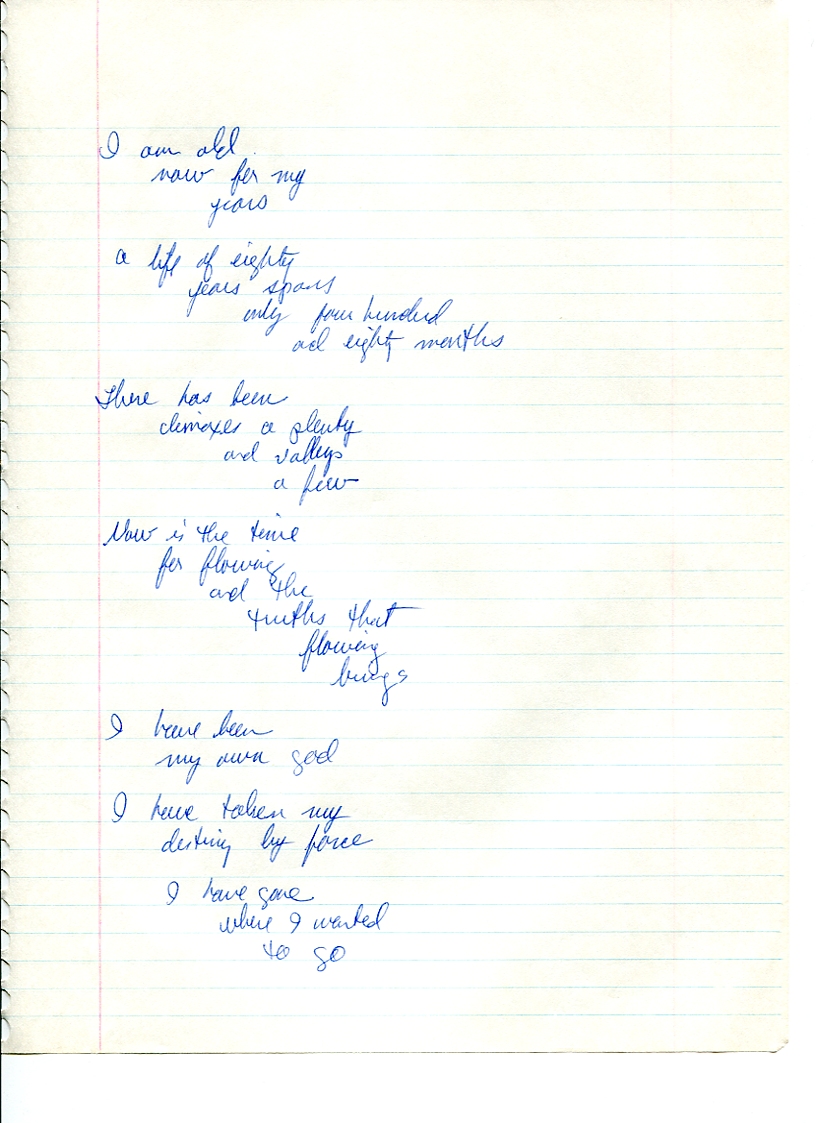 I am old
now for my
years
a life of eighty
years spans
only four hundred
and eighty months
There has been
climaxes a plenty
and valleys
a few
Now is the time
for flowing
and the
truths that
flowing
brings
I have been
my own god
I have taken my
destiny by force
I have gone
where I wanted
to go